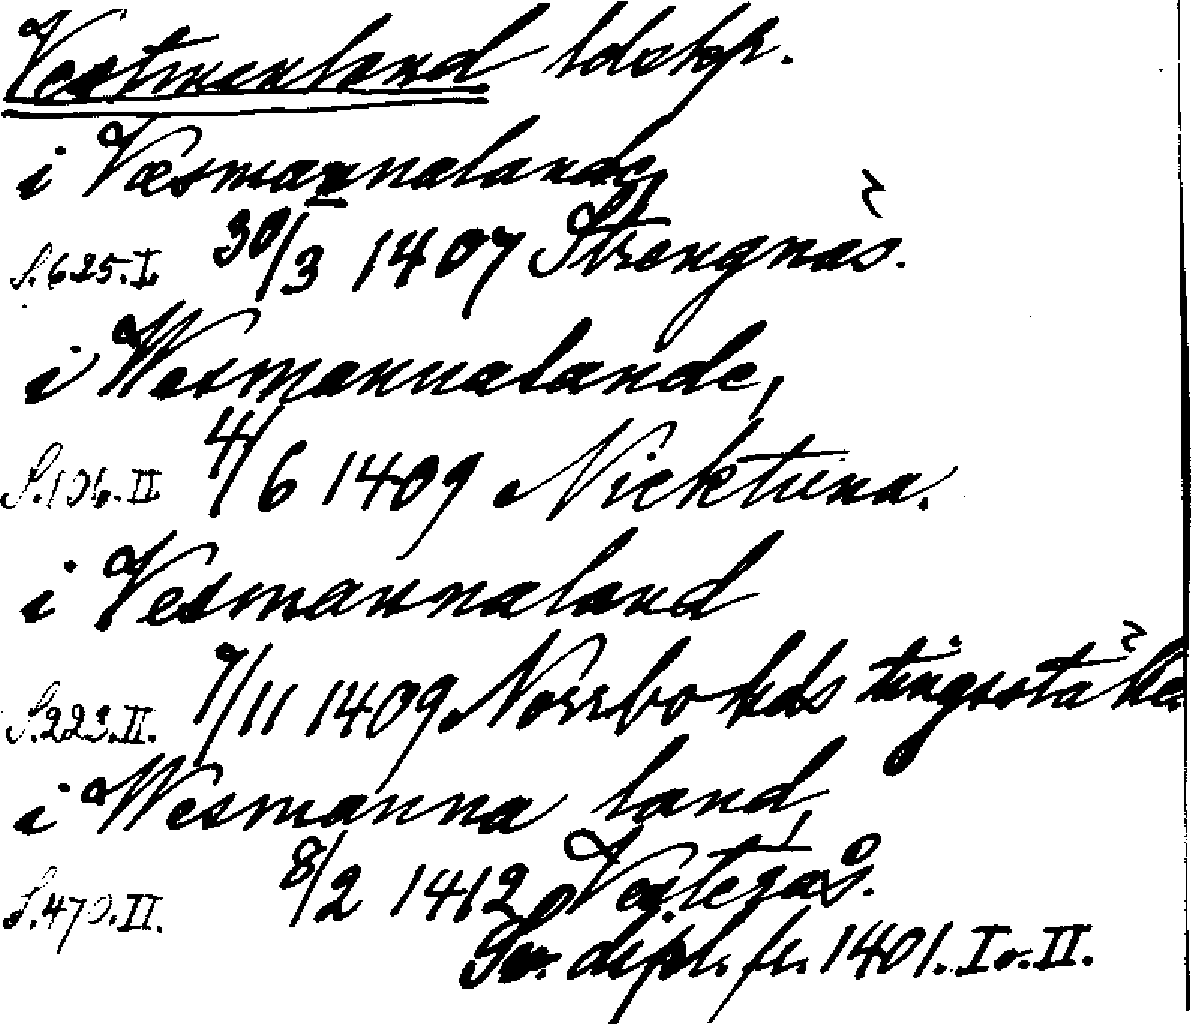 Vestmanland ldskp.
i Væsmannalande,
S. 625. I. 30/3 1407 Strengnäs.
i Wesmannalande,
S. 106. II 4/6 1409 Nicktuna.
i Vesmannaland
S. 223. II. 7/11 1409 Norrbo hds tingsställe
i Wesmanna land,
S. 470. II. 8/2 1412 Vesterås.
Sv. dipl. fr. 1401. I o. II.